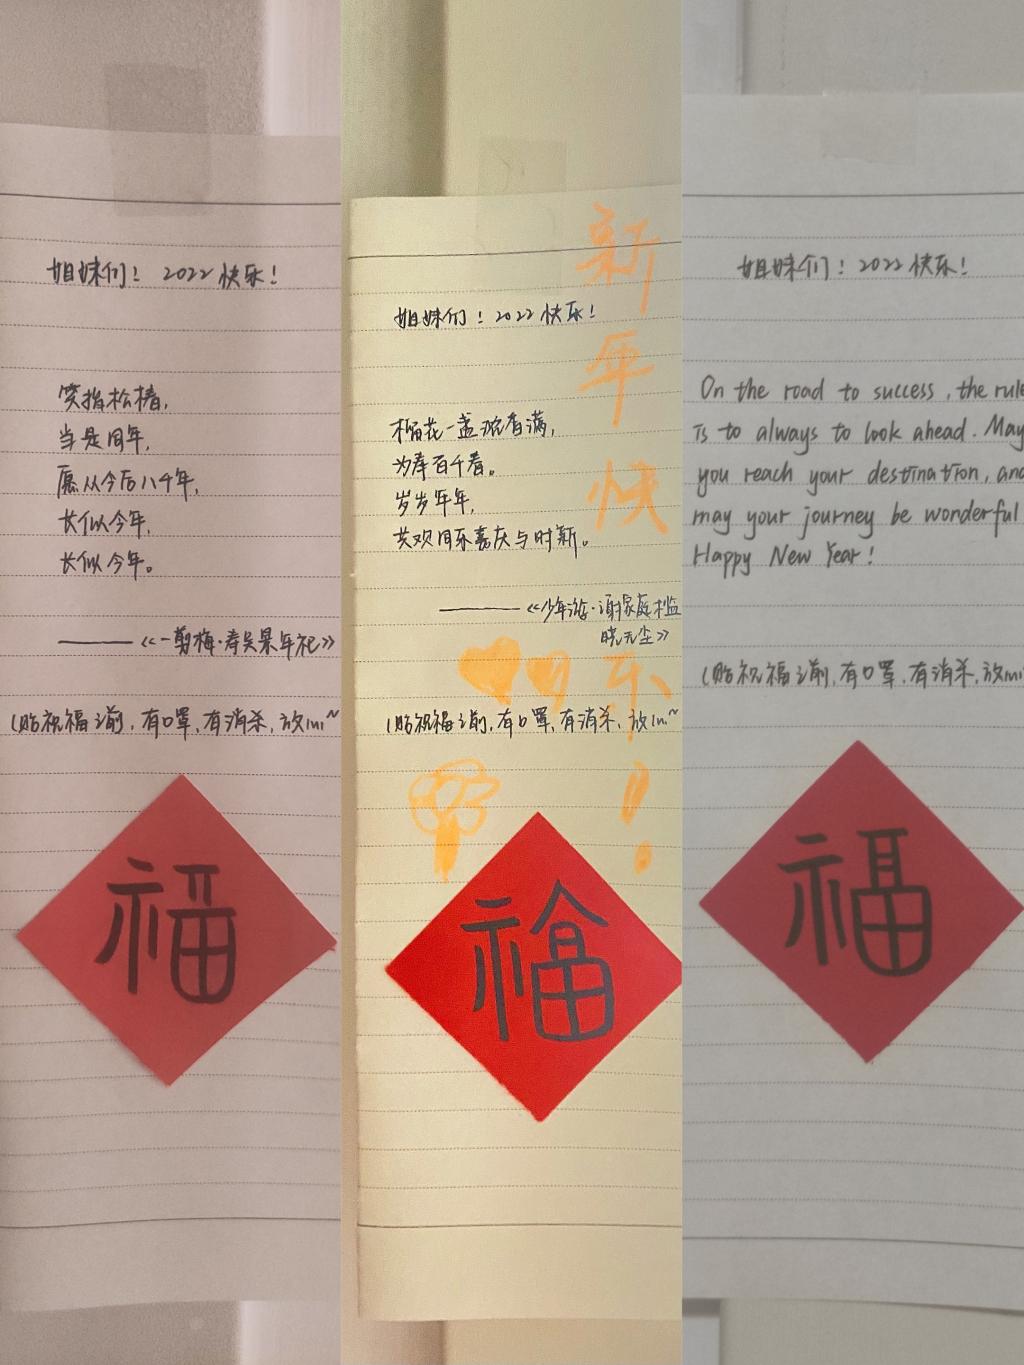 姐妹们！2022快乐！
笑指松椿，
当是同年，
愿从今后八千年，
长似今年，
长似今年。
——《一剪梅·寿吴景年祀》
（贴祝福之前，有口罩，有消杀，放心~
福
新年快乐！
姐妹们！2022快乐！
榴花一盏浓香满，
为寿百千春。
岁岁年年，
共欢同乐嘉庆与时新。
——《少年游·谢家庭槛
晓无尘》
（贴祝福之前，有口罩，有消杀，放心~
福
姐妹们！2022快乐！
On the road to success, the rule
is to always to look ahead. May
you reach your destination, and
may your journey be wonderful
Happy New Year!
（贴祝福之前，有口罩，有消杀，放心
福